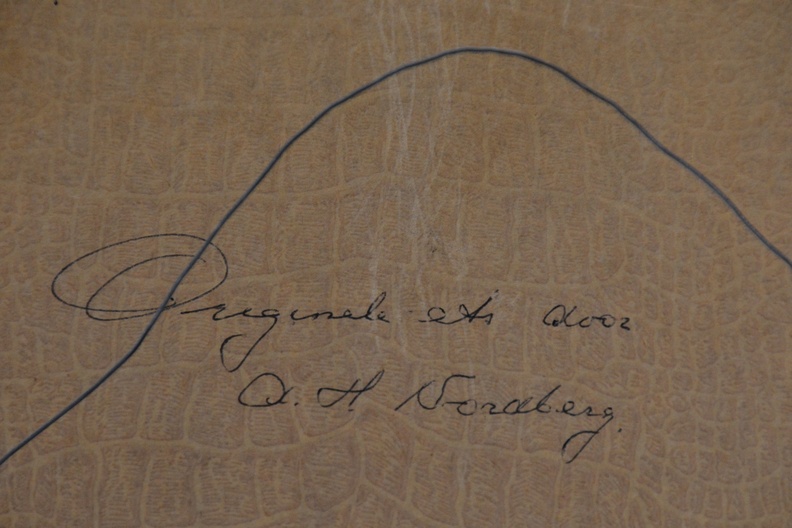 Originele ets door
A. H. Nordberg.